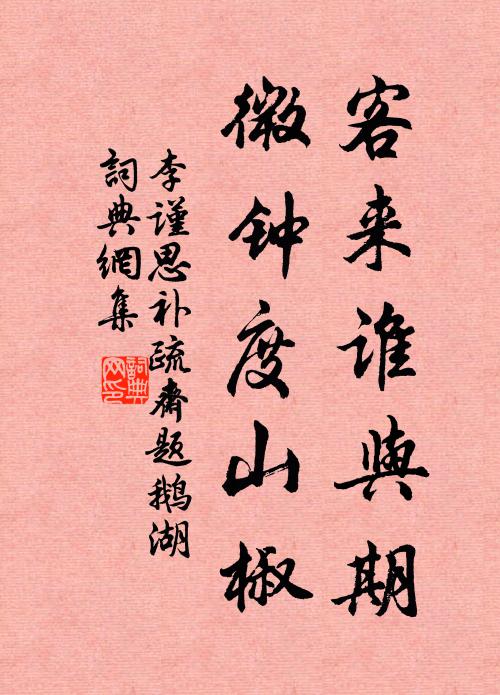 客来谁与期
微钟度山椒
李谨思补疏斋题鹅湖
词典網集
詞典
网印